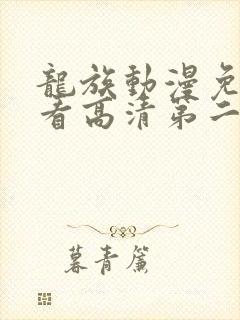 龍族動漫免
看高清第二
暮青簾